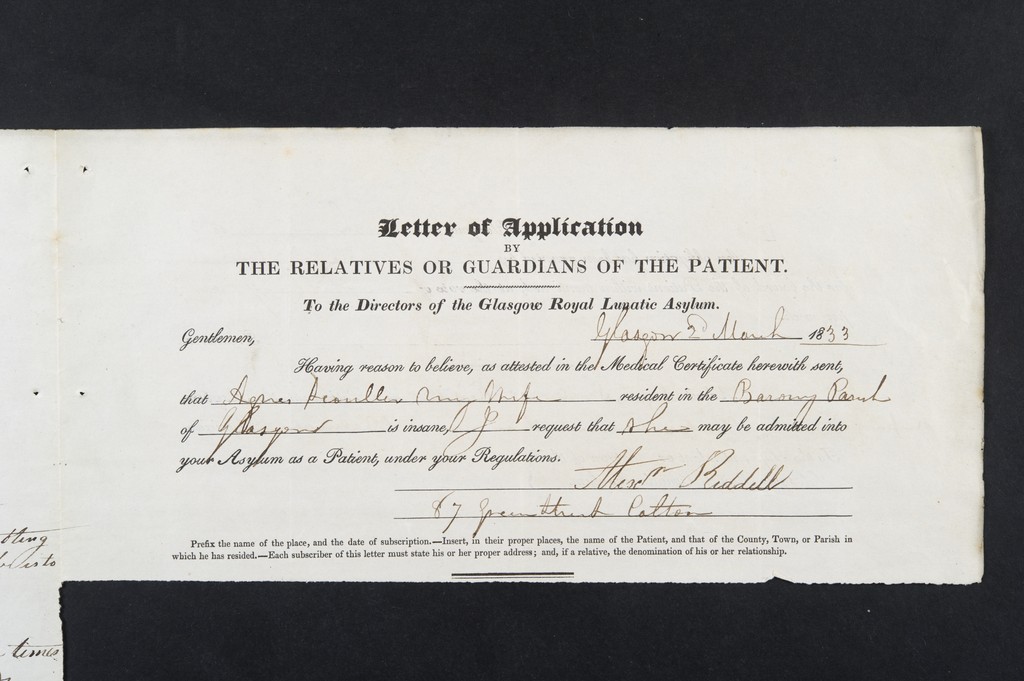 Letter of Application
BY
THE RELATIVES OR GUARDIANS OF THE PATIENT.
To the Directors of the Glasgow Royal Lunatic Asylum.
Glasgow 2d March 1833
Gentlemen,
Having reason to believe, as attested in the Medical Certificate herewith sent,
that Agnes my Wife resident in the Barony Parish
of Glasgow is insane, I request that she may be admitted into
your Asylum as a Patient, under your Regulations.
Alexr Riddell
87 Green Street Calton
Prefix the name of the place, and the date of subscription.—Insert, in their proper places, the name of the Patient, and that of the County, Town, or Parish in
which he has resided.—Each subscriber of this letter must state his or her proper address; and, if a relative, the denomination of his or her relationship.
times